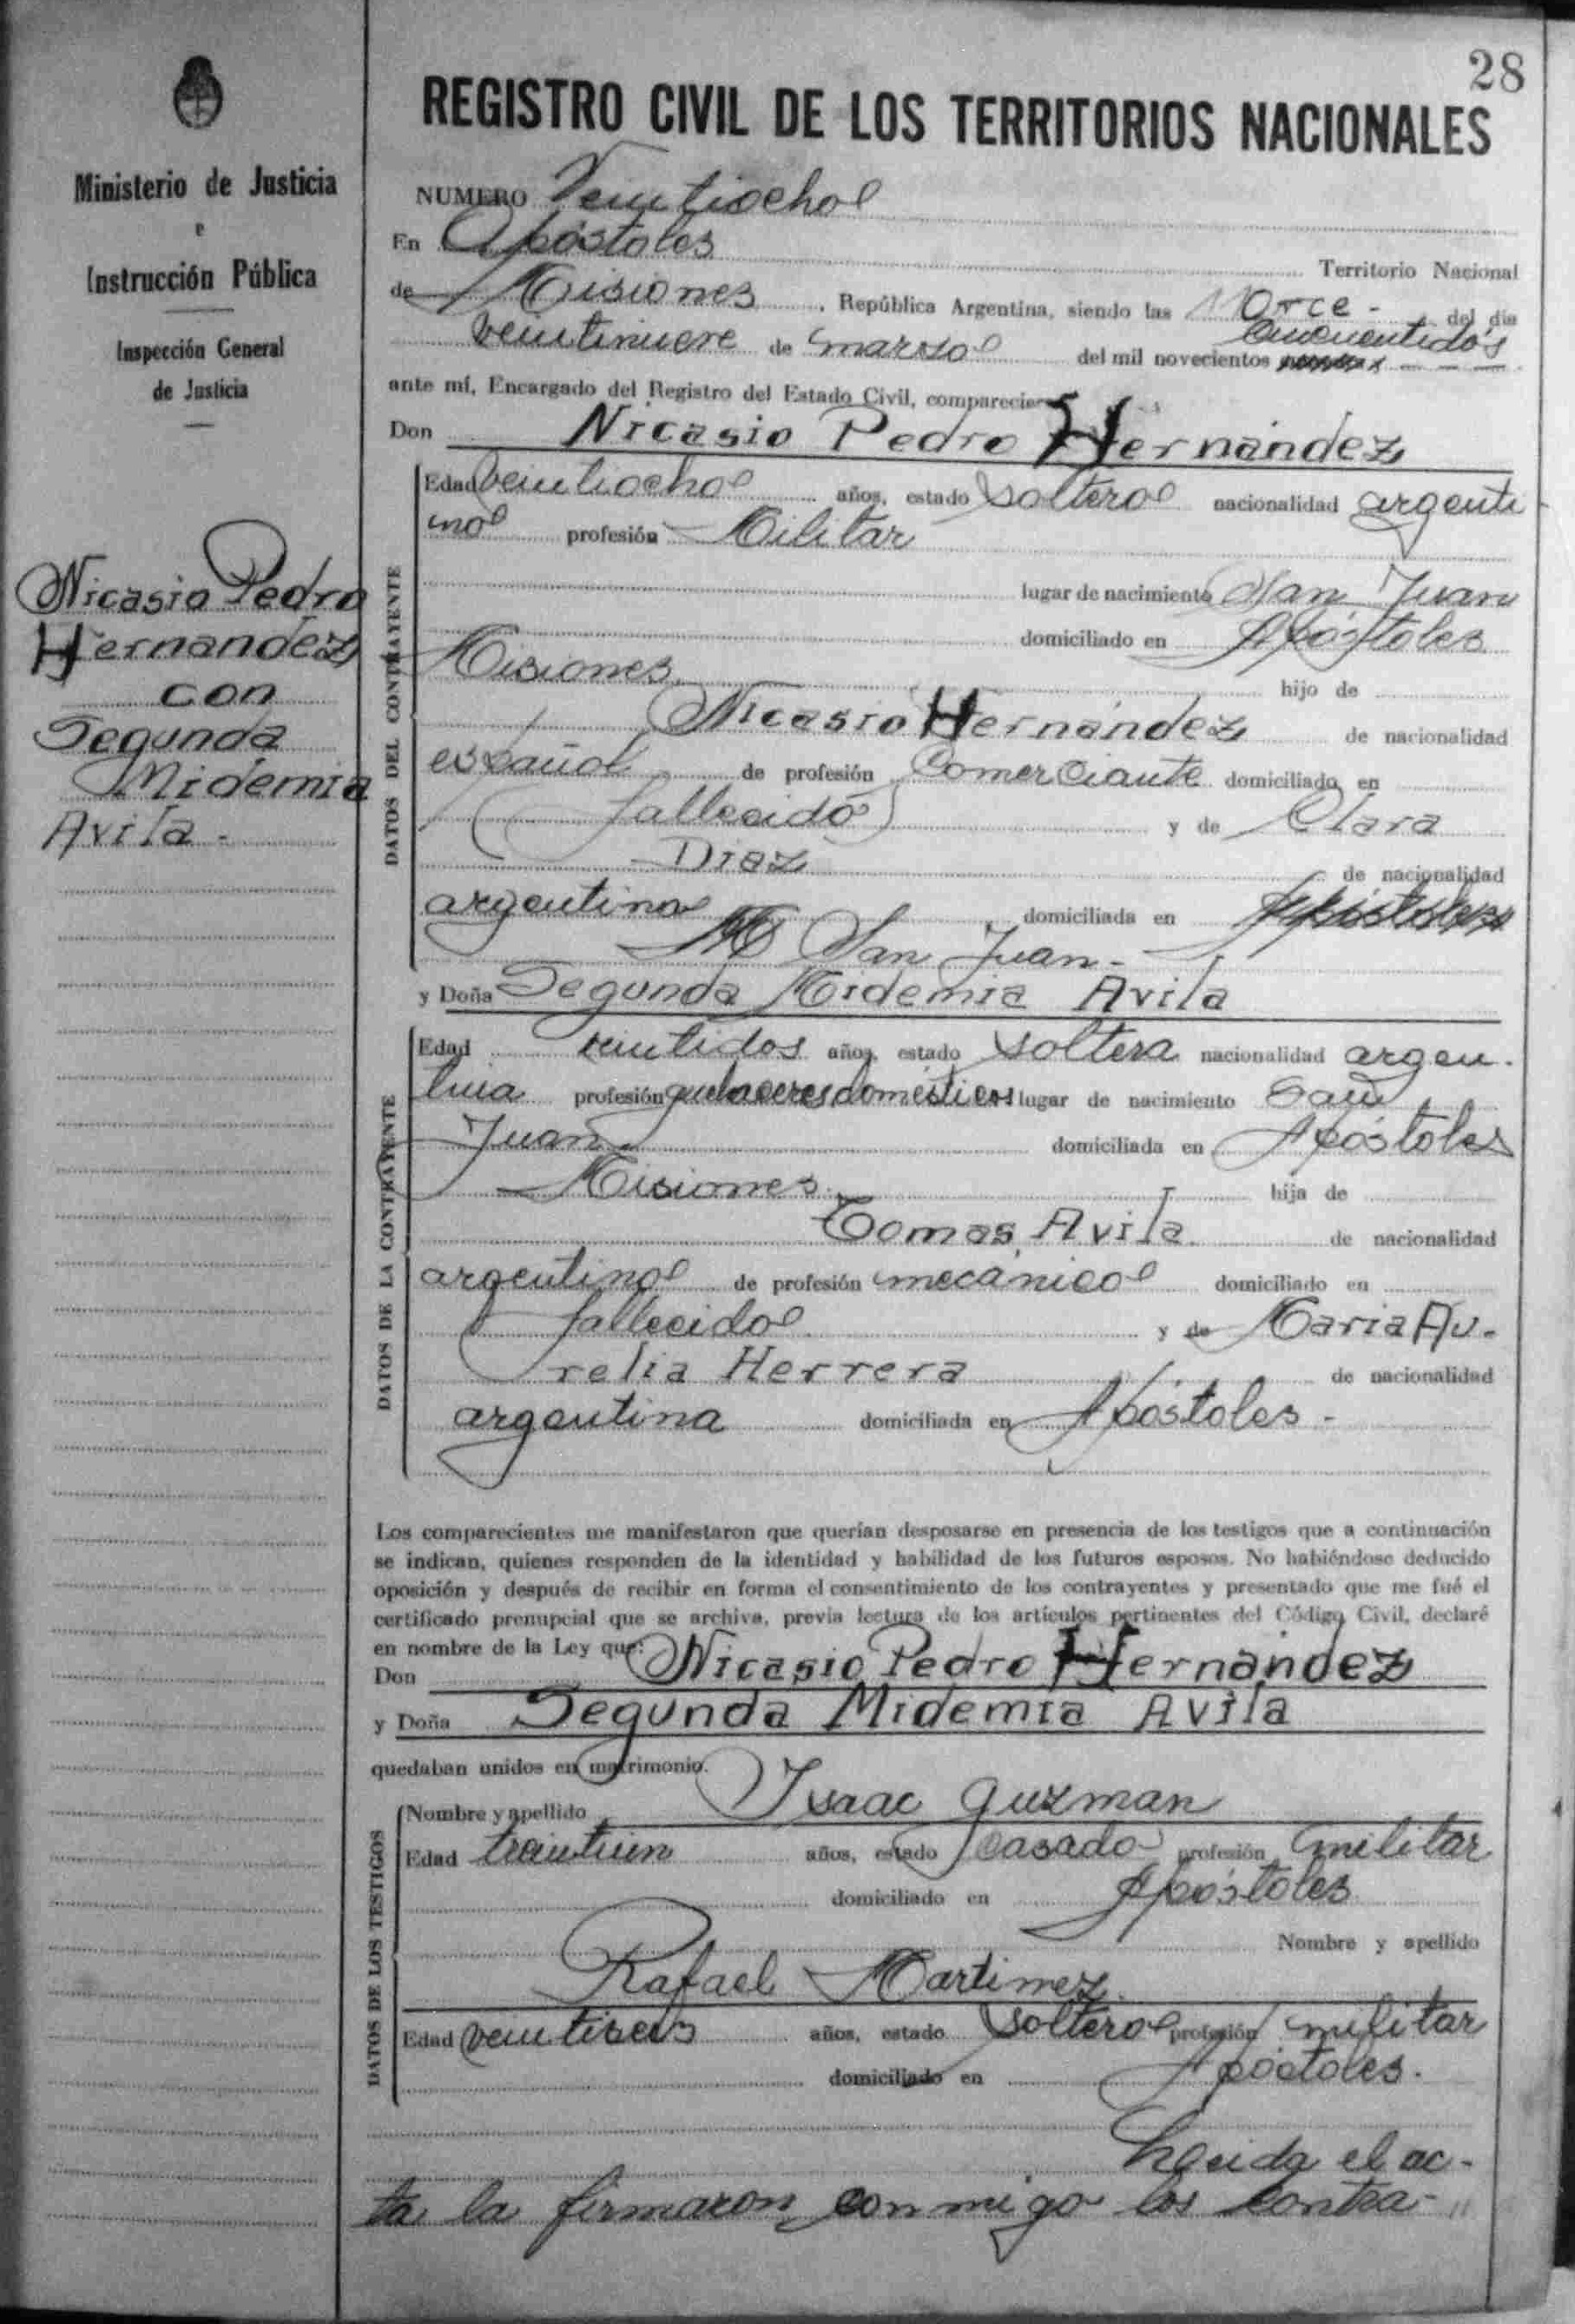 28
REGISTRO CIVIL DE LOS TERRITORIOS NACIONALES
Ministerio de Justicia
e
Instrucción Pública
Inspección General
de Justicia
Nicasio Pedro
Hernandez
con
Segunda
Midemia
Avila -
NUMERO Veintiocho
En Apóstoles Territorio Nacional
de Misiones, República Argentina, siendo las 11 Once - del día
veintinueve de marzo del mil novecientos cincuentidós
ante mí, Encargado del Registro del Estado Civil, comparecieron
Don Nicasio Pedro Hernández
DATOS DEL CONTRAYENTE
Edad veintiocho años, estado soltero nacionalidad argenti
no profesión Militar
lugar de nacimiento San Juan
domiciliado en Apóstoles
Misiones hijo de
Nicasio Hernández de nacionalidad
español de profesión Comerciante domiciliado en
(fallecido) y de Clara
Diaz de nacionalidad
argentina domiciliada en Apóstoles
San Juan -
y Doña Segunda Midemia Avila
DATOS DE LA CONTRAYENTE
Edad veintidos años, estado soltera nacionalidad argen-
tina profesión quehaceres domésticos lugar de nacimiento San
Juan domiciliada en Apóstoles
Misiones hija de
Tomas Avila de nacionalidad
argentino de profesión mecánico domiciliado en
fallecido y de Maria Au-
relia Herrera de nacionalidad
argentina domiciliada en Apóstoles -
Los comparecientes me manifestaron que querían desposarse en presencia de los testigos que a continuación
se indican, quienes responden de la identidad y habilidad de los futuros esposos. No habiéndose deducido
oposición y después de recibir en forma el consentimiento de los contrayentes y presentado que me fué el
certificado prenupcial que se archiva, previa lectura de los artículos pertinentes del Código Civil, declaré
en nombre de la Ley que:
Don Nicasio Pedro Hernández
y Doña Segunda Midemia Avila
quedaban unidos en matrimonio.
DATOS DE LOS TESTIGOS
Nombre y apellido Isaac Guzman
Edad treintiun años, estado casado profesión militar
domiciliado en Apóstoles
Nombre y apellido
Rafael Martinez
Edad veintiseis años, estado soltero profesión militar
domiciliado en Apóstoles.
Leida el ac-
ta la firmaron conmigo los contra-